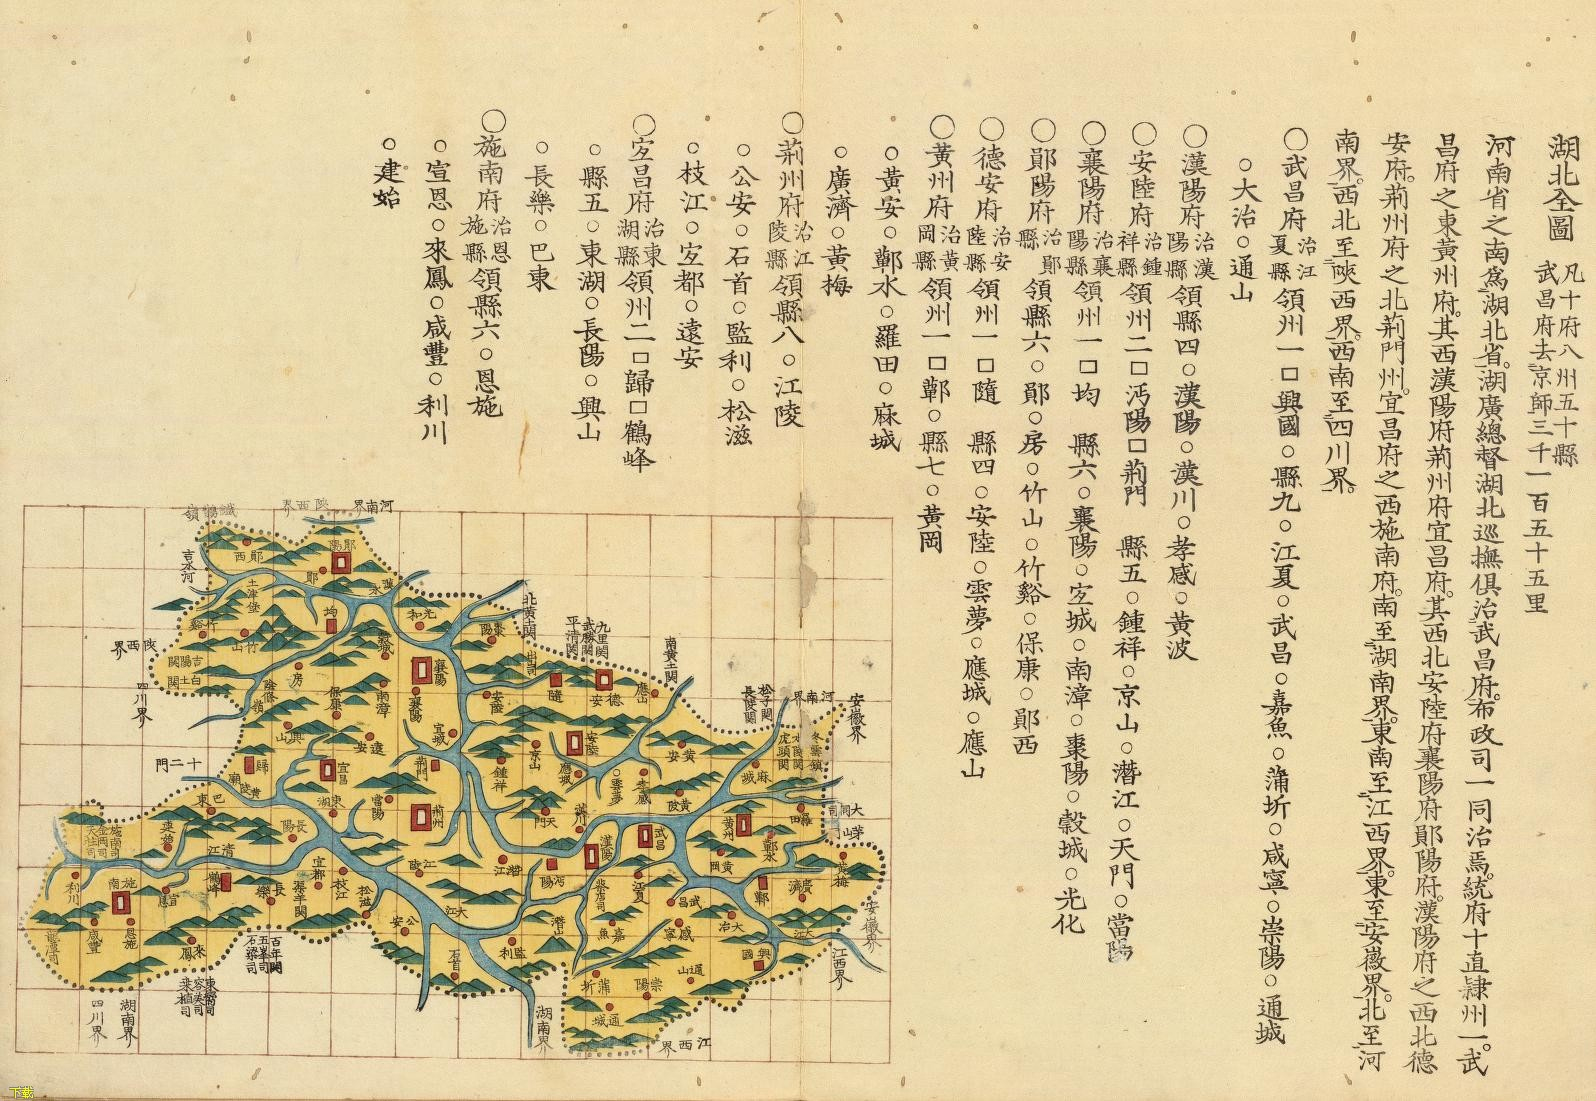 湖北全圖
凡十府八州五十縣
武昌府去京師三千一百五十五里
河南省之南爲湖北省。湖廣總督湖北巡撫俱治武昌府。布政司一同治焉。統府十直隸州一。武
昌府之東黃州府。其西漢陽府荆州府宜昌府。其西北安陸府襄陽府鄖陽府。漢陽府之西北德
安府。荆州府之北荆門州。宜昌府之西施南府。南至湖南界。東南至江西界。東至安徽界。北至河
南界。西北至陝西界。西南至四川界。
○武昌府治江夏縣領州一□興國○縣九○江夏○武昌○嘉魚○蒲圻○咸寧○崇陽○通城
○大冶○通山
○漢陽府治漢陽縣領縣四○漢陽○漢川○孝感○黃波
○安陸府治鍾祥縣領州二□沔陽□荆門 縣五○鍾祥○京山○潛江○天門○當陽
○襄陽府治襄陽縣領州一□均 縣六○襄陽○宜城○南漳○棗陽○榖城○光化
○鄖陽府治鄖縣 領縣六○鄖○房○竹山○竹谿○保康○鄖西
○德安府治安陸縣領州一□隨 縣四○安陸○雲夢○應城○應山
○黃州府治黃岡縣領州一□蘄○縣七○黃岡
○黃安○蘄水○羅田○麻城
○廣濟○黃梅
○荆州府治江陵縣領縣八○江陵
○公安○石首○監利○松滋
○枝江○宜都○遠安
○宜昌府治東湖縣領州二□歸□鶴峰
○縣五○東湖○長陽○興山
○長樂○巴東
○施南府治恩施縣領縣六○恩施
○宣恩○來鳳○咸豐○利川
○建始
河南界
陝西界
鄖陽
鄖西
鄖
吉水河
土津堡
竹谿
竹山
均
光和
穀城
棗陽
北黃土關
九里關
武勝關
平清關
南黃土關
陝西界
四川界
房
保康
南漳
襄陽
襄陽
出山司
隨
德安
應山
安陸
長嶺關
河南界
安徽界
興山
遠安
宜城
荆門
鍾祥
京山
安陸
應城
雲夢
孝感
黃安
麻城
虎頭關
十二門
歸
黃陵廟
宜昌
東湖
當陽
荆州
天門
漢川
黃陂
武昌
黃州
羅田
大同司
巴東
建始
長陽
清江
鶴峰
長樂
宜都
枝江
松滋
江陵
潛江
沔陽
漢陽
江夏
黃岡
蘄水
蘄
廣濟
黃梅
利川
施南
恩施
宣恩
咸豐
來鳳
百年關
五峯司
石梁司
公安
大江
石首
監利
嘉魚
武昌
咸寧
大冶
興國
大江
安徽界
江西界
蒲圻
崇陽
通山
通城
湖南界
四川界
湖南界
江西界
下載